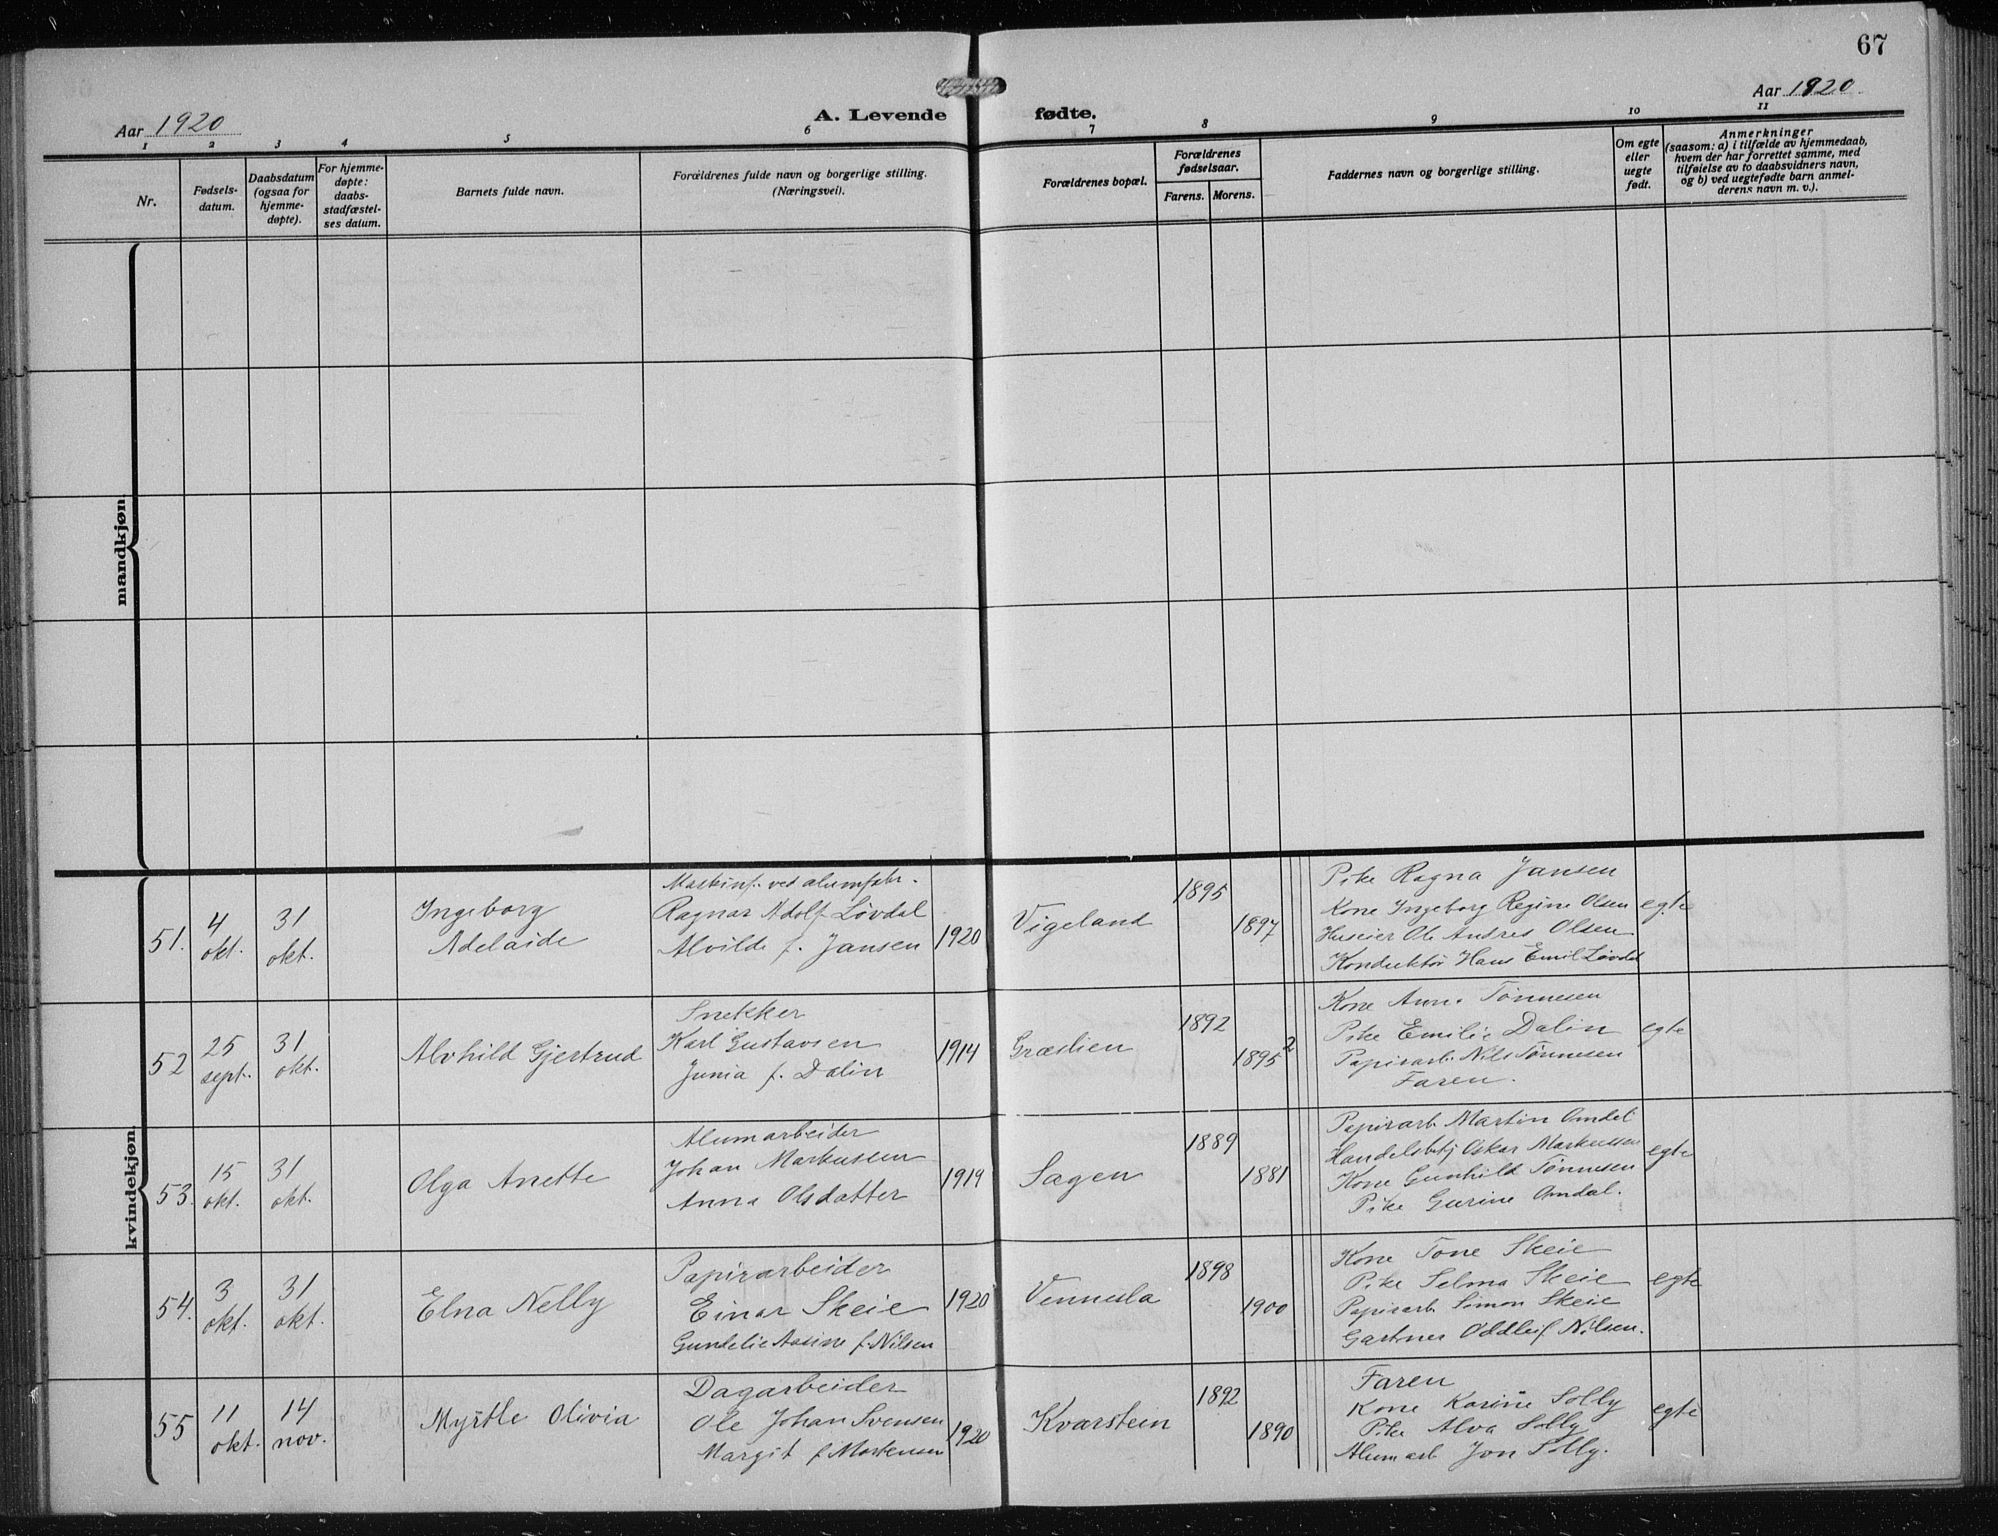 67
Aar 1920
A. Levende
fødte.
Aar 1920.
1 2 3 4 5 6 7 8 9 10 11
Nr.
Fødsels-
datum.
Daabsdatum
(ogsaa for
hjemme-
døpte).
For hjemme-
døpte:
daabs-
stadfæstel-
ses datum.
Barnets fulde navn.
Forældrenes fulde navn og borgerlige stilling.
(Næringsvei).
Forældrenes bopæl.
Forældrenes
fødselsaar.
Farens. Morens.
Faddernes navn og borgerlige stilling.
Om egte
eller
uegte
født.
Anmerkninger
(saasom: a) i tilfælde av hjemmedaab,
hvem der har forrettet samme, med
tilføielse av to daabsvidners navn,
og b) ved uegtefødte barn anmel-
derens navn m. v.).
mandkjøn
kvindekjøn.
51.
4
okt.
31
okt.
Ingeborg
Adelaide
Maskinf. ved alumfabr.
Ragnar Adolf Løvdal
Alvilde f. Jansen
1920
Vigeland
1895
1897
Pike Ragna Jansen
Kone Ingeborg Regine Olsen
Huseier Ole Andres Olsen
Konduktør Hans Emil Løvdal
egte
52
25
sept.
31
okt.
Alvhild Gjertrud
Snekker
Karl Gustavsen
Junia f. Dalin
1914
Græslien
1892
1895
2
Kone Anna Tønnesen
Pike Emilie Dalin
Papirarb. Nils Tønnesen
Faren.
egte
53.
15
okt.
31
okt.
Olga Anette
Alumarbeider
Johan Markussen
Anna Olsdatter
1919
Sagen
1889
1881
Papirarb. Martin Omdal
Handelsbtj Oskar Markussen
Kone Gunhild Tønnesen
Pike Gurine Omdal.
egte
54.
3
okt.
31
okt.
Elna Nelly
Papirarbeider
Einar Skeie
Gundelie Aasine f. Nilsen
1920
Vennesla
1898
1900
Kone Tone Skeie
Pike Selma Skeie
Papirarb. Simon Skeie
Gartner Oddleif Nilsen.
egte
55
11
okt.
14
nov.
Myrtle Olivia
Dagarbeider
Ole Johan Svensen
Margit f Mortensen
1920
Kvarstein
1892
1890
Faren
Kone Karine Solly
Pike Alva Solly
Alumarb Jon Solly.
egte